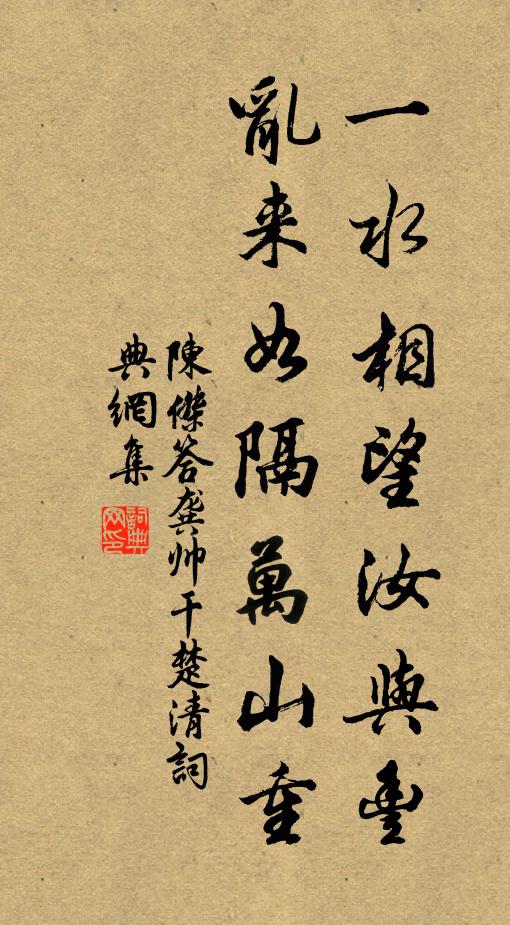 一水相望汝與豐
亂来如隔萬山重
陳傑答龔帅干楚清詞
典網集
詞典
网印